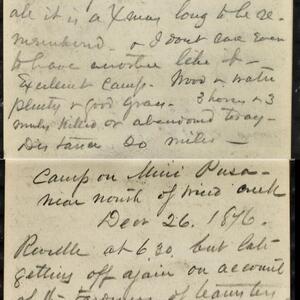 ale it is a Xmas long to be re-
membered. & I dont care ever
to have another like it -
Excelent camp. Wood & water
plenty & good Grass. 3 horses & 3
mules killed or abandoned today -
Distance 20 miles -
Camp on Mini Pusa -
near mouth of Wind creek
Decr 26. 1876.
Reveille at 6.30. but late
getting off again on account
of the tardiness of teamsters